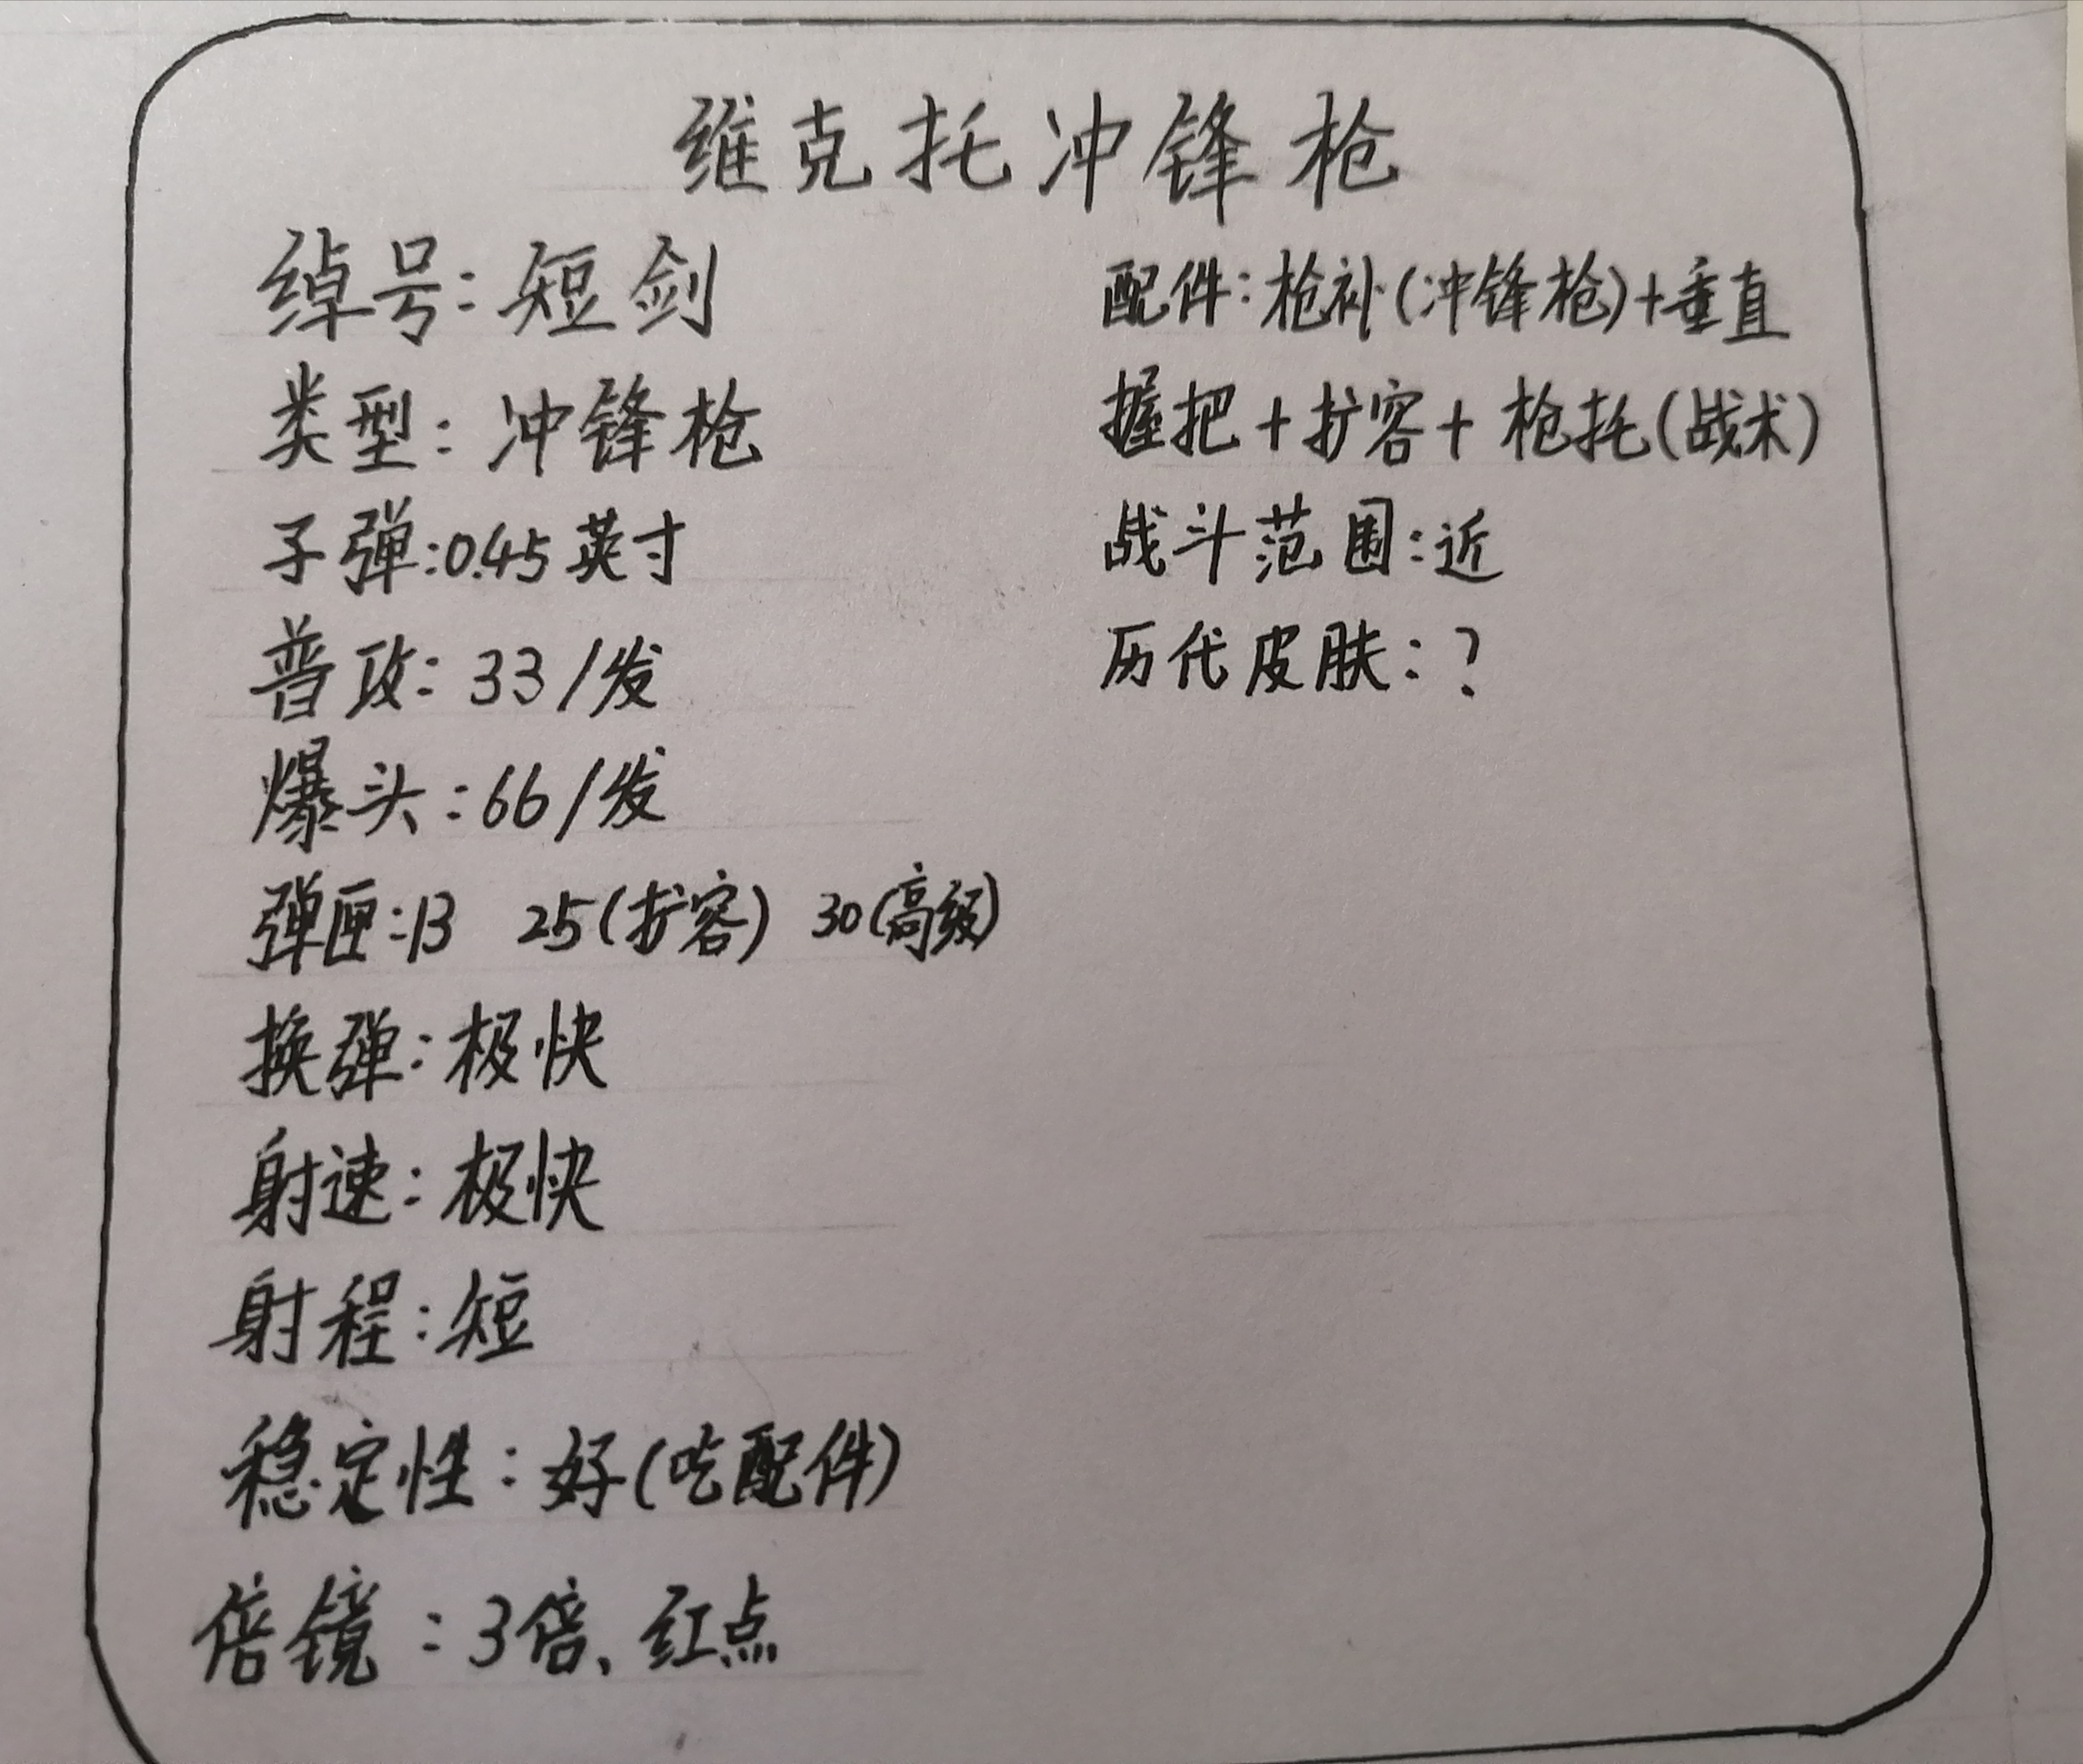 维克托冲锋枪
绰号：短剑
类型：冲锋枪
子弹：0.45英寸
普攻：33/发
爆头：66/发
弹匣：13 25(扩容) 30(高级)
换弹：极快
射速：极快
射程：短
稳定性：好(吃配件)
倍镜：3倍、红点
配件：枪补(冲锋枪)+垂直
握把+扩容+枪托(战术)
战斗范围：近
历代皮肤：？